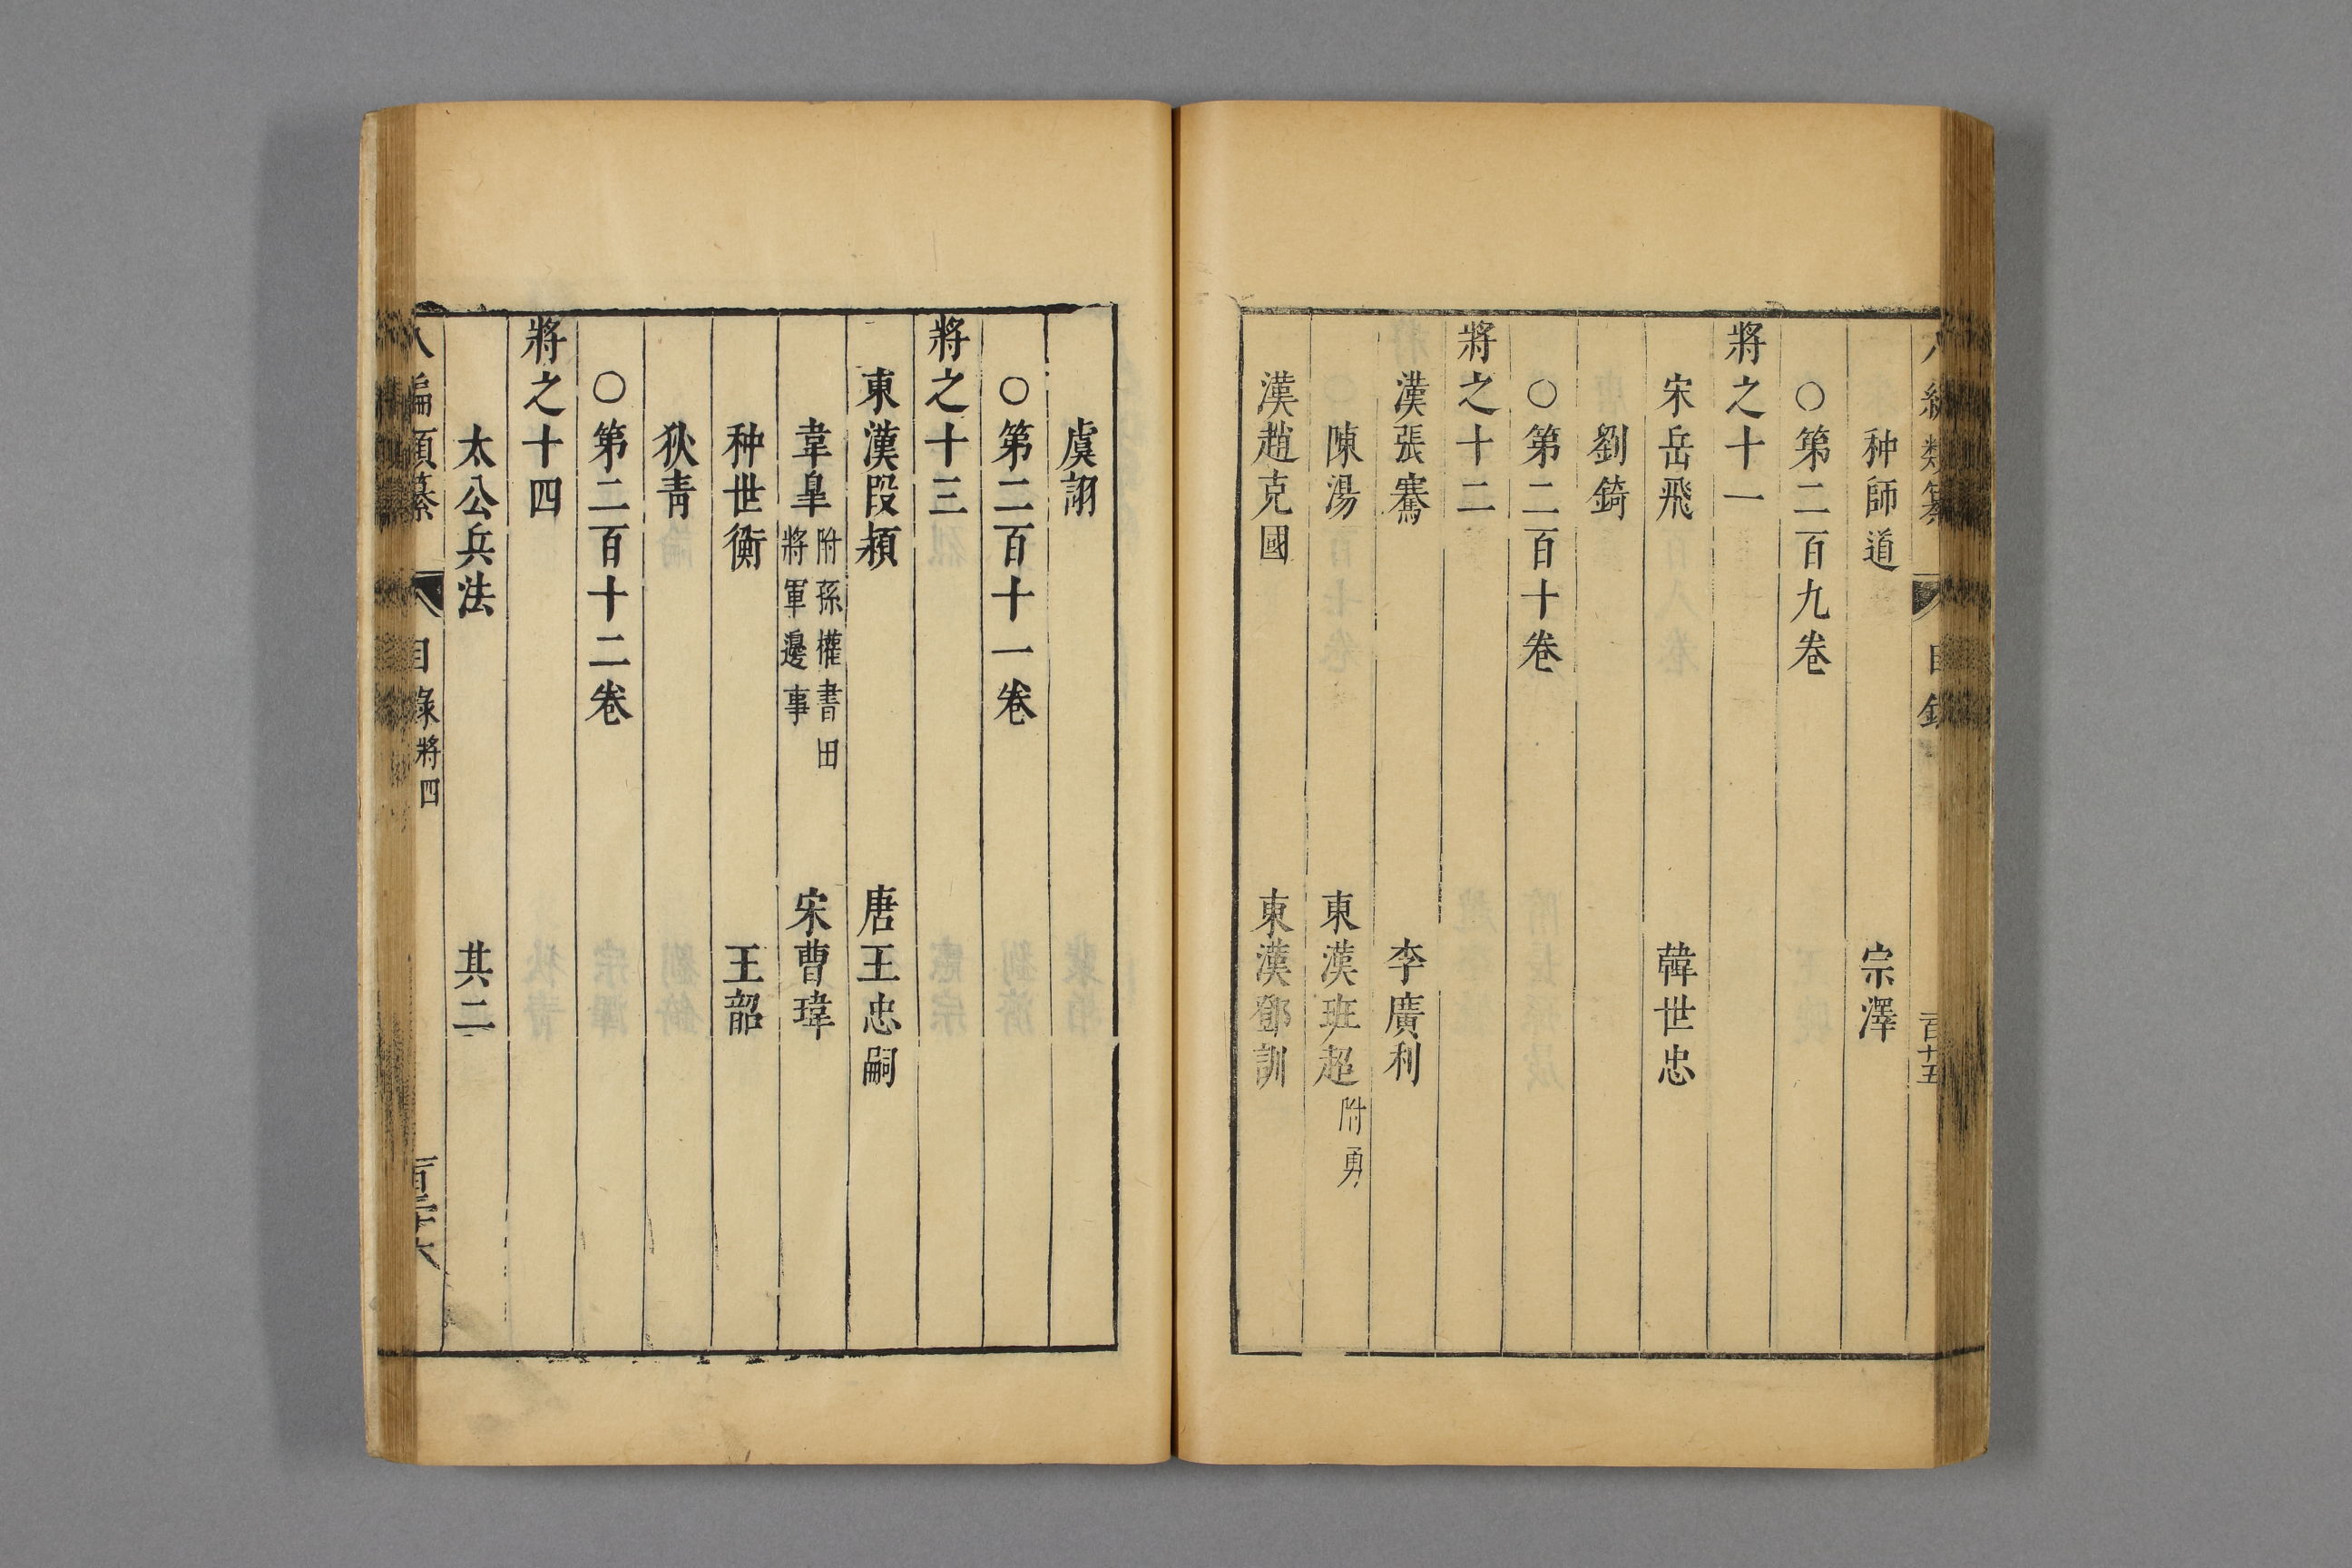 種師道　宗澤
○第二百九卷
將之十一
宋岳飛　韓世忠
劉錡
○第二百十卷
將之十二
漢張騫　李廣利
陳湯　東漢班超附勇
漢趙克國　東漢鄧訓
虞詡
○第二百十一卷
將之十三
東漢段熲　唐王忠嗣
韋皐附孫權書田將軍邊事　宋曹瑋
种世衡　王韶
狄青
○第二百十二卷
將之十四
太公兵法　其二
八編類纂　目錄將四